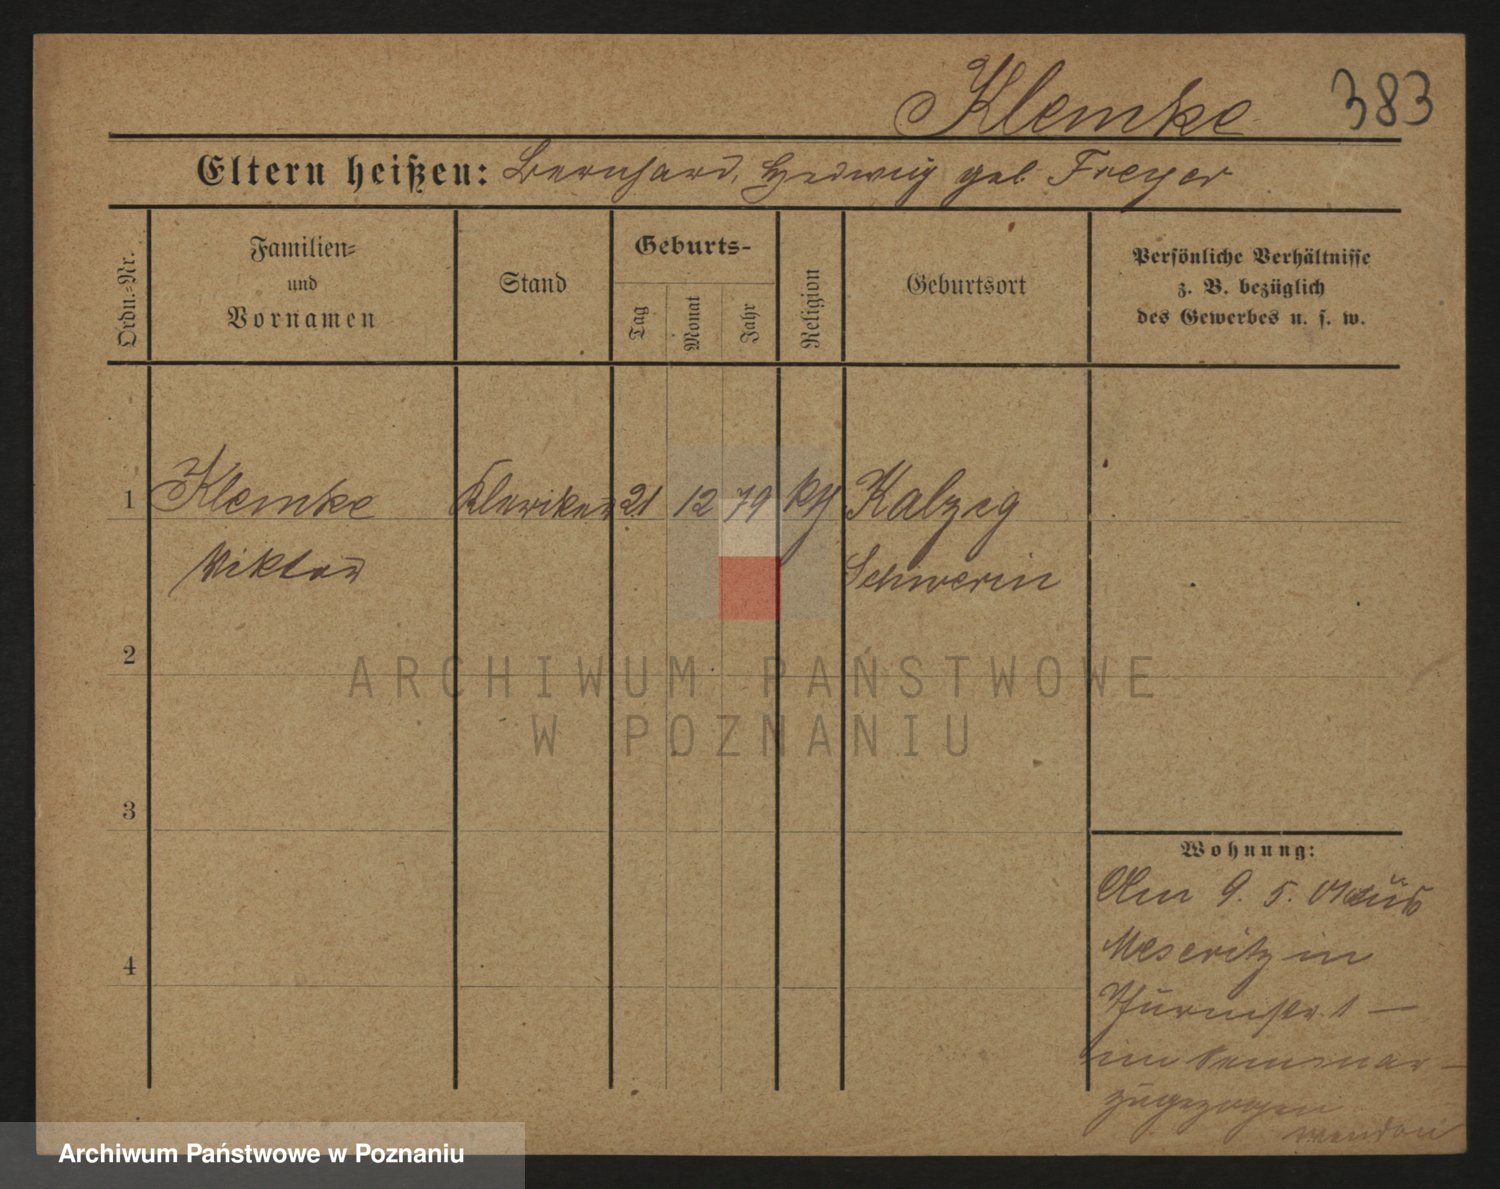 Klemke 383
Eltern heißen: Bernhard, Hedwig geb. Freyer
Ordn.-Nr.
Familien-
und
Vornamen
Stand
Geburts-
Tag
Monat
Jahr
Religion
Geburtsort
Persönliche Verhältnisse
z. B. bezüglich
des Gewerbes u. s. w.
1 Klemke Kleriker 21 12 79 kth Kalzig
Viktor Schwerin
2
ARCHIWUM PAŃSTWOWE
W POZNANIU
3
Wohnung:
Am 9. 5. 01 aus
Meseritz in
Thurmstr. 1 —
im Seminar —
zugezogen
wenden
4
Archiwum Państwowe w Poznaniu